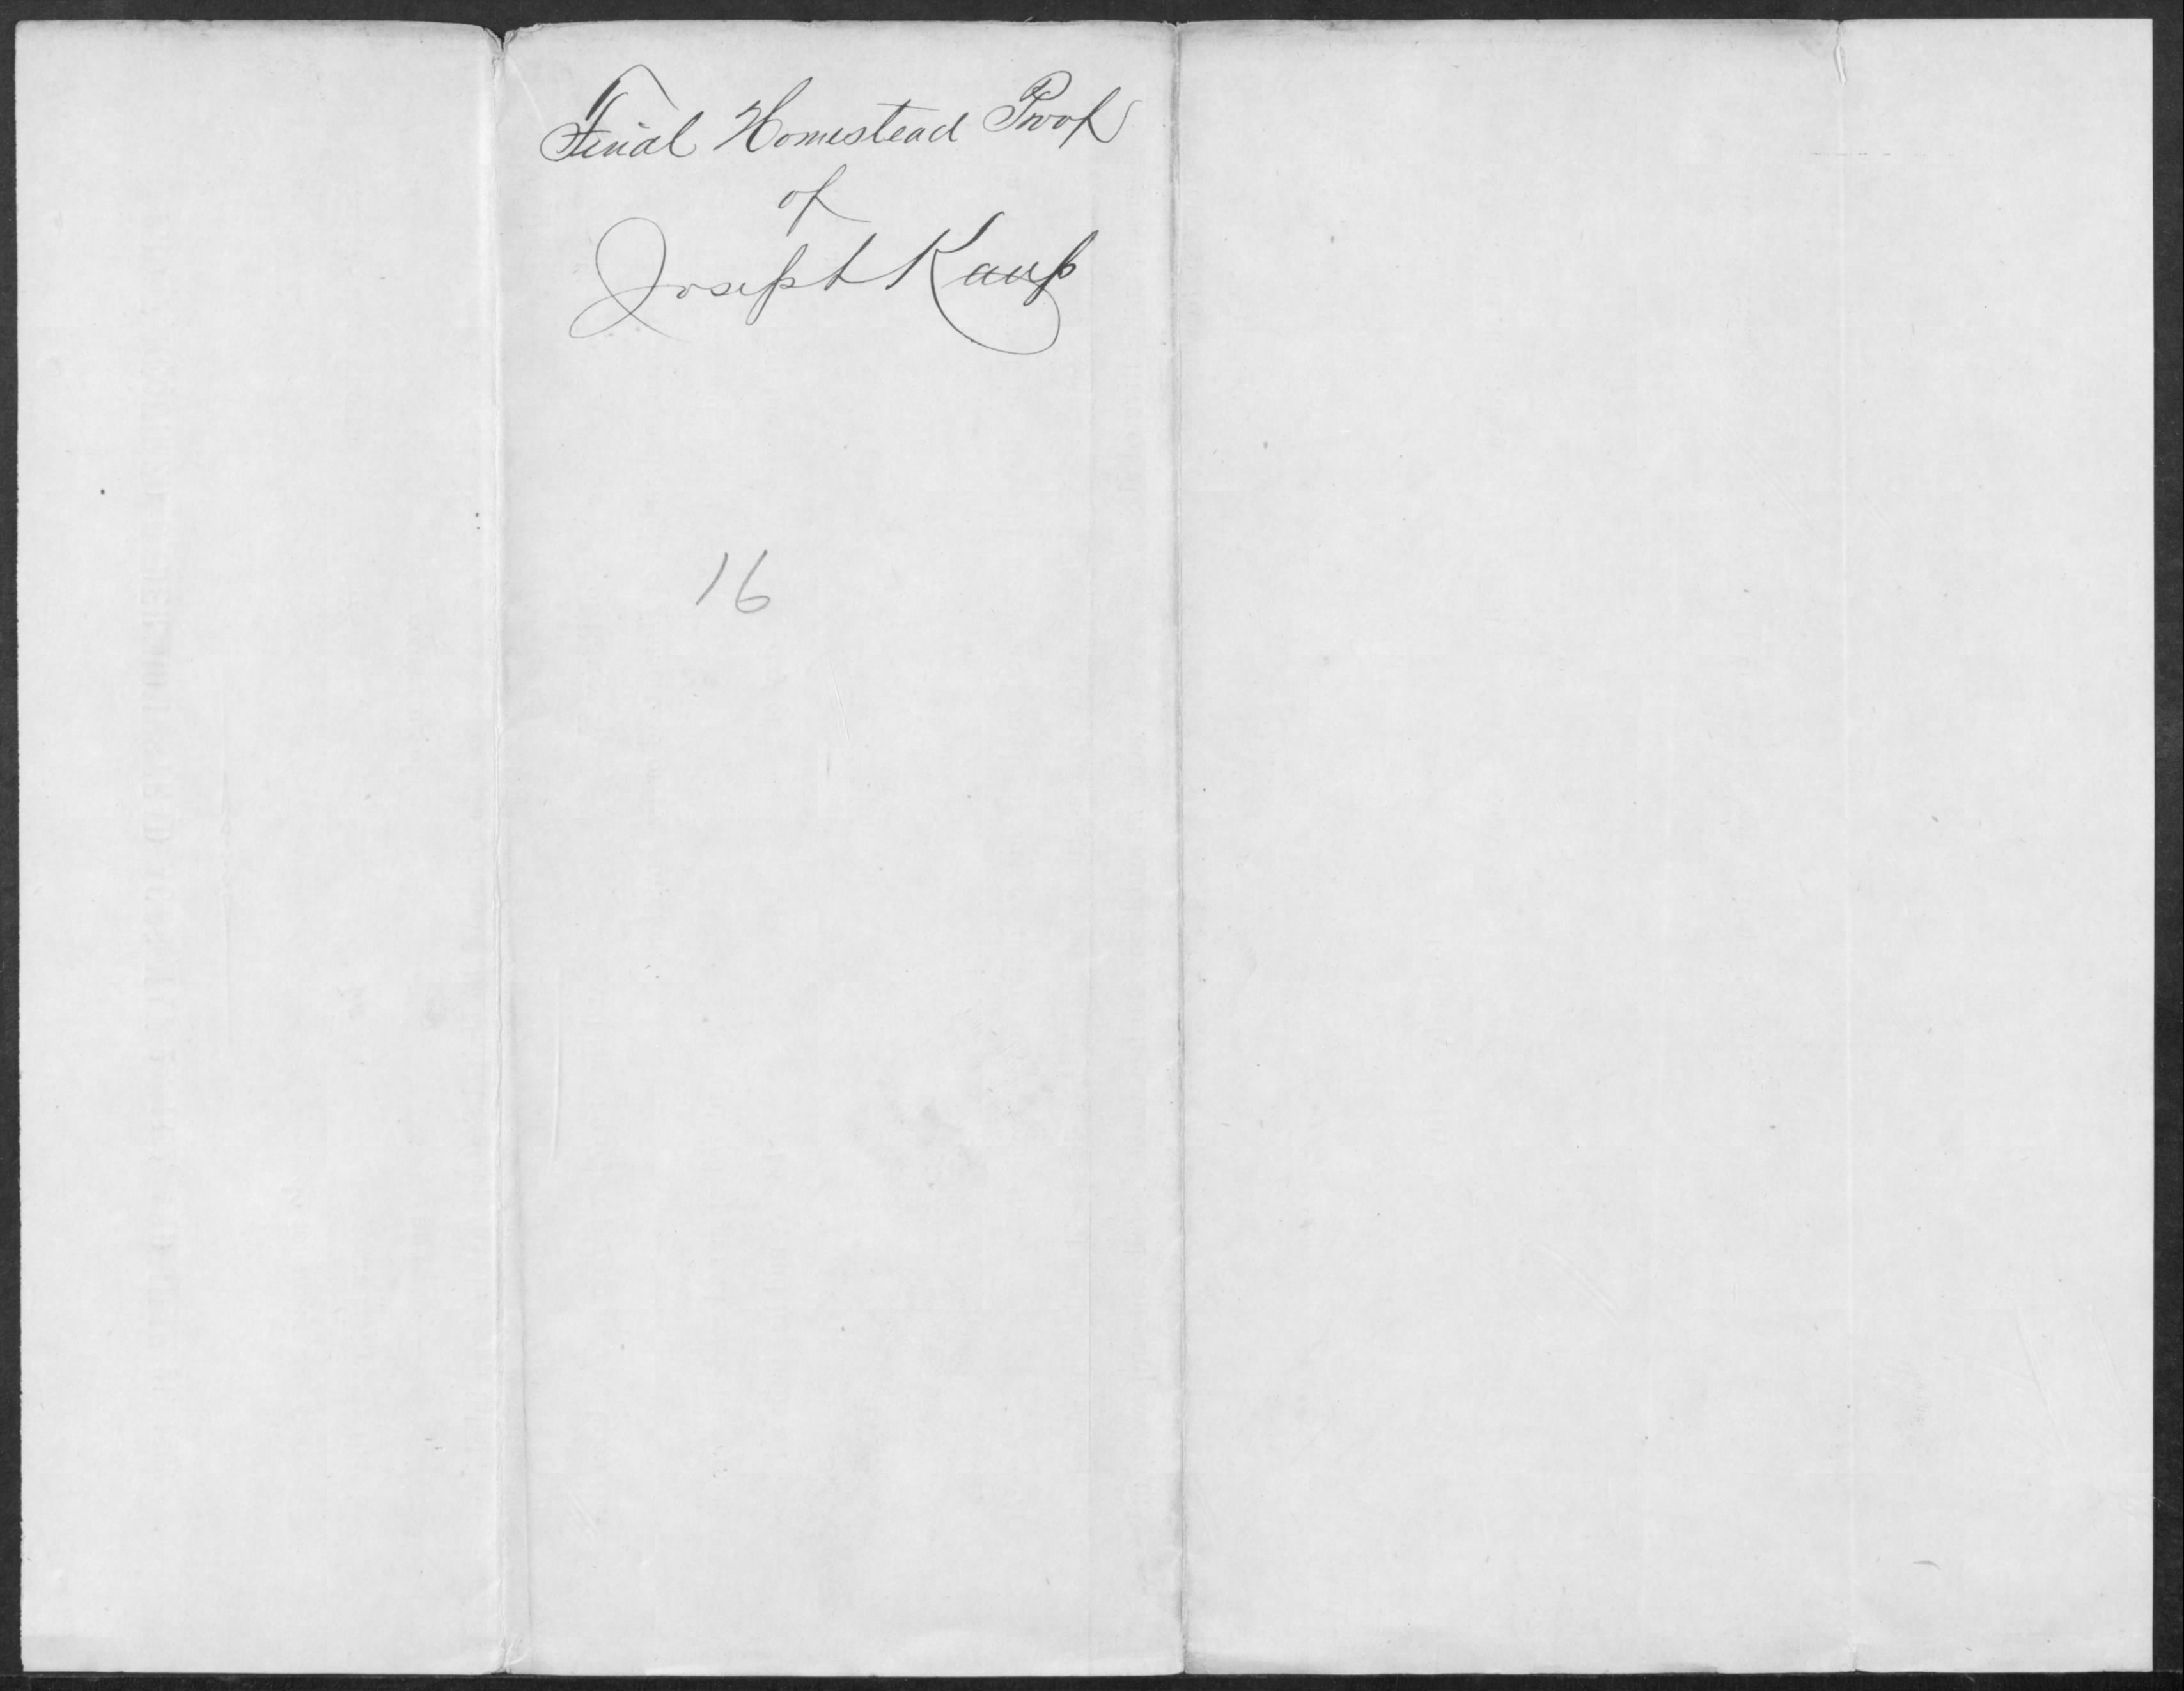 Final Homestead Proof
of
Joseph Kaup
16